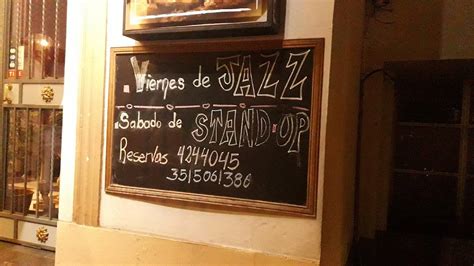 .Viernes de JAZZ
.Sabado de STAND-UP
Reservas 4244045
3515061386